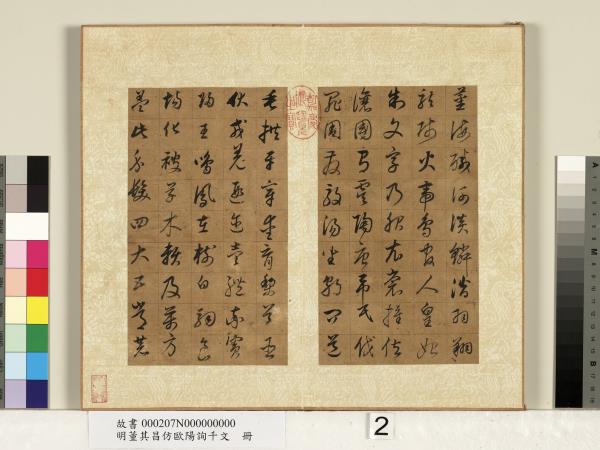 薑海鹹河淡鱗潛羽翔
龍師火帝鳥官人皇始
制文字乃服衣裳推位
讓國有虞陶唐弔民伐
罪周發殷湯坐朝問道
垂拱平章愛育黎首臣
伏戎羌遐邇壹體率賓
歸王鳴鳳在樹白駒食
場化被草木賴及萬方
蓋此身髮四大五常恭
故書 000207N000000000
明董其昌仿歐陽詢千文 冊
2